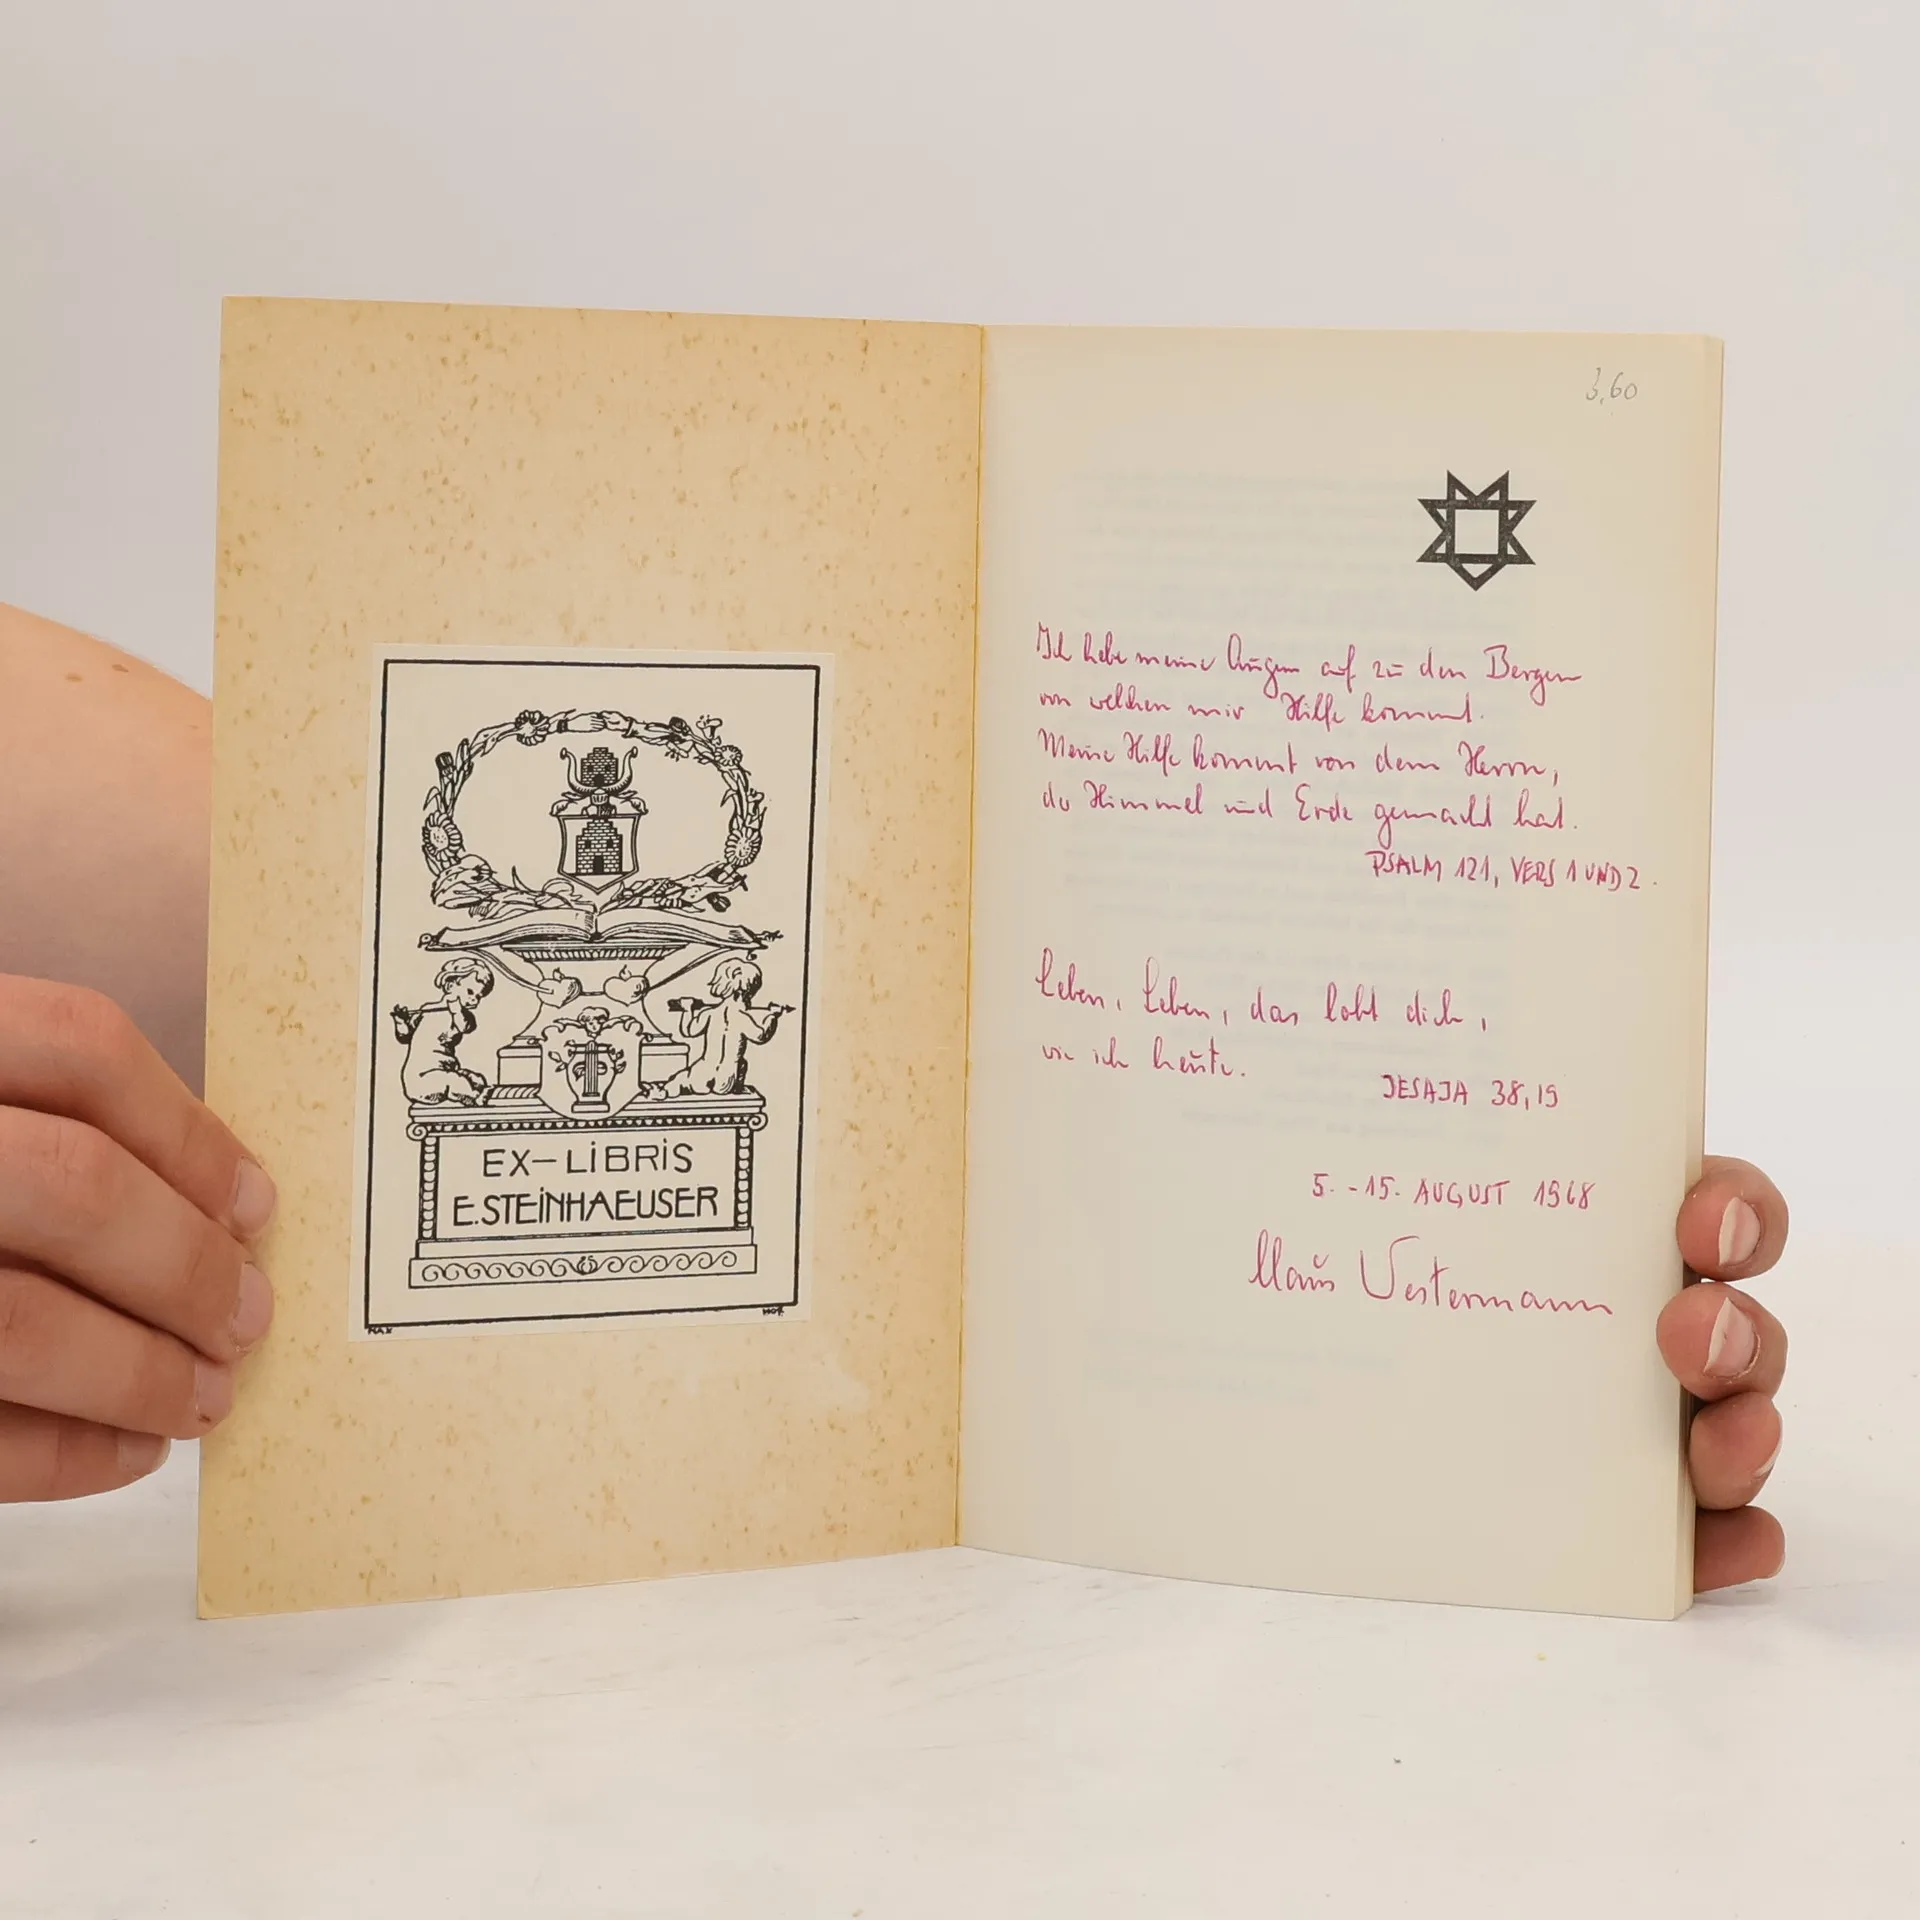 EX-LIBRIS
E. STEINHAEUSER
MAX
3,60
Ich hebe meine Augen auf zu den Bergen
von welchen mir Hilfe kommt.
Meine Hilfe kommt von dem Herrn,
der Himmel und Erde gemacht hat.
PSALM 121, VERS 1 UND 2.
Leben, Leben, das lobt dich,
wie ich heute.
JESAJA 38,19
5. - 15. AUGUST 1968
Klaus Westermann